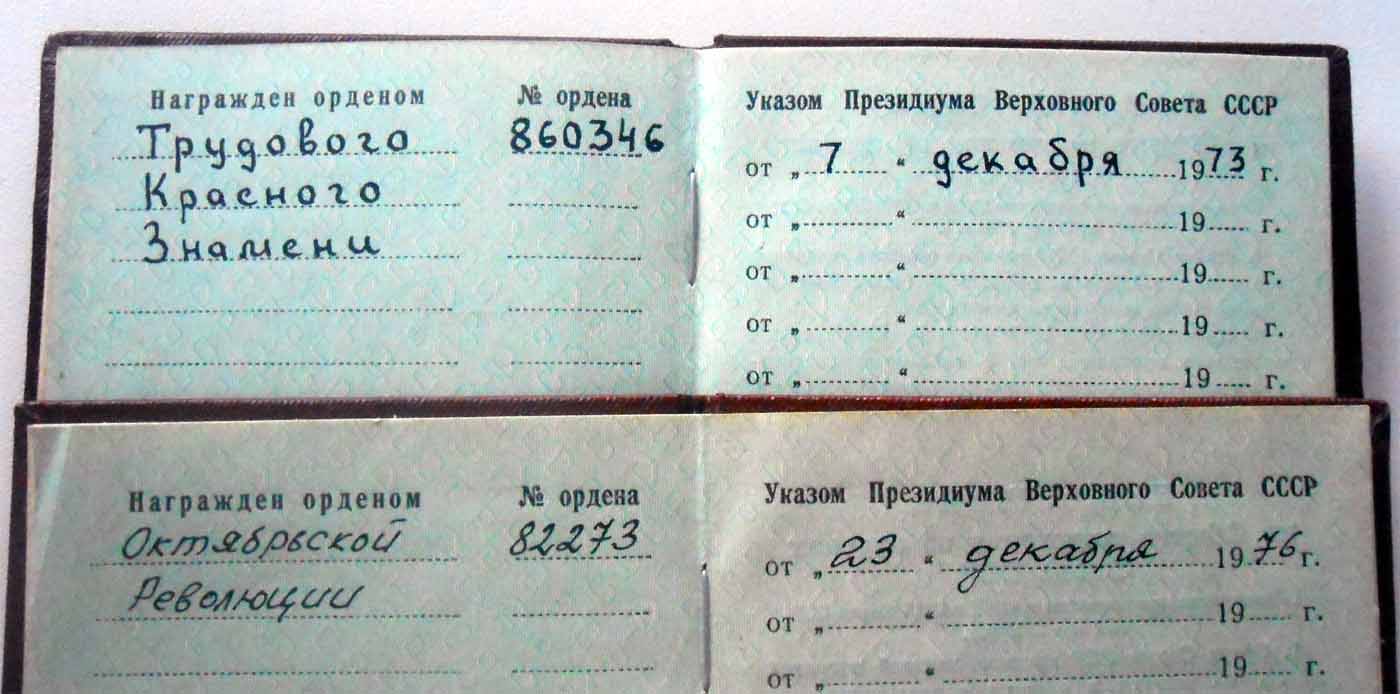 Награжден орденом № ордена Указом Президиума Верховного Совета СССР
Трудового 860346 от „ 7 “ декабря 1973 г.
Красного от „ “ 19 г.
Знамени от „ “ 19 г.
от „ “ 19 г.
от „ “ 19 г.
Награжден орденом № ордена Указом Президиума Верховного Совета СССР
Октябрьской 82273 от „ 23 “ декабря 1976 г.
Революции от „ “ 19 г.
от „ “ 19 г.